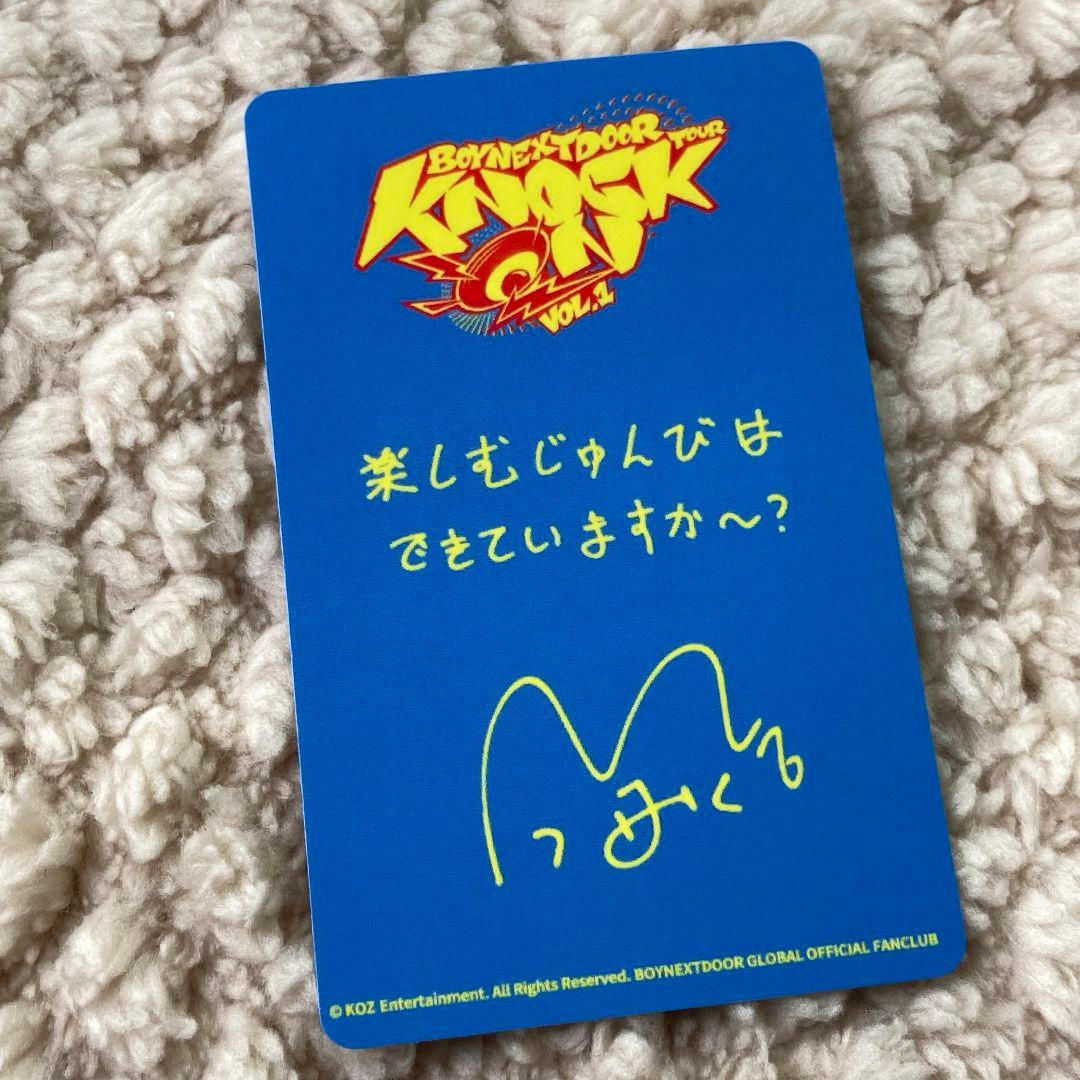 BOYNEXTDOOR TOUR
KNOCK
ON
VOL.1
楽しむじゅんびは
できていますか〜?
© KOZ Entertainment. All Rights Reserved. BOYNEXTDOOR GLOBAL OFFICIAL FANCLUB